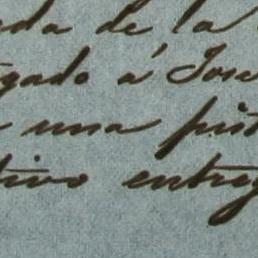 da de la
gado á José
una pist
tivo entreg